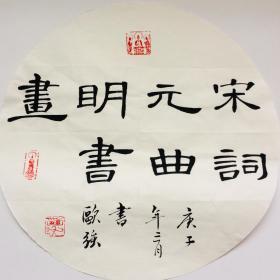 宋詞
元曲
明書
畫
庚子
年三月
書
歐強